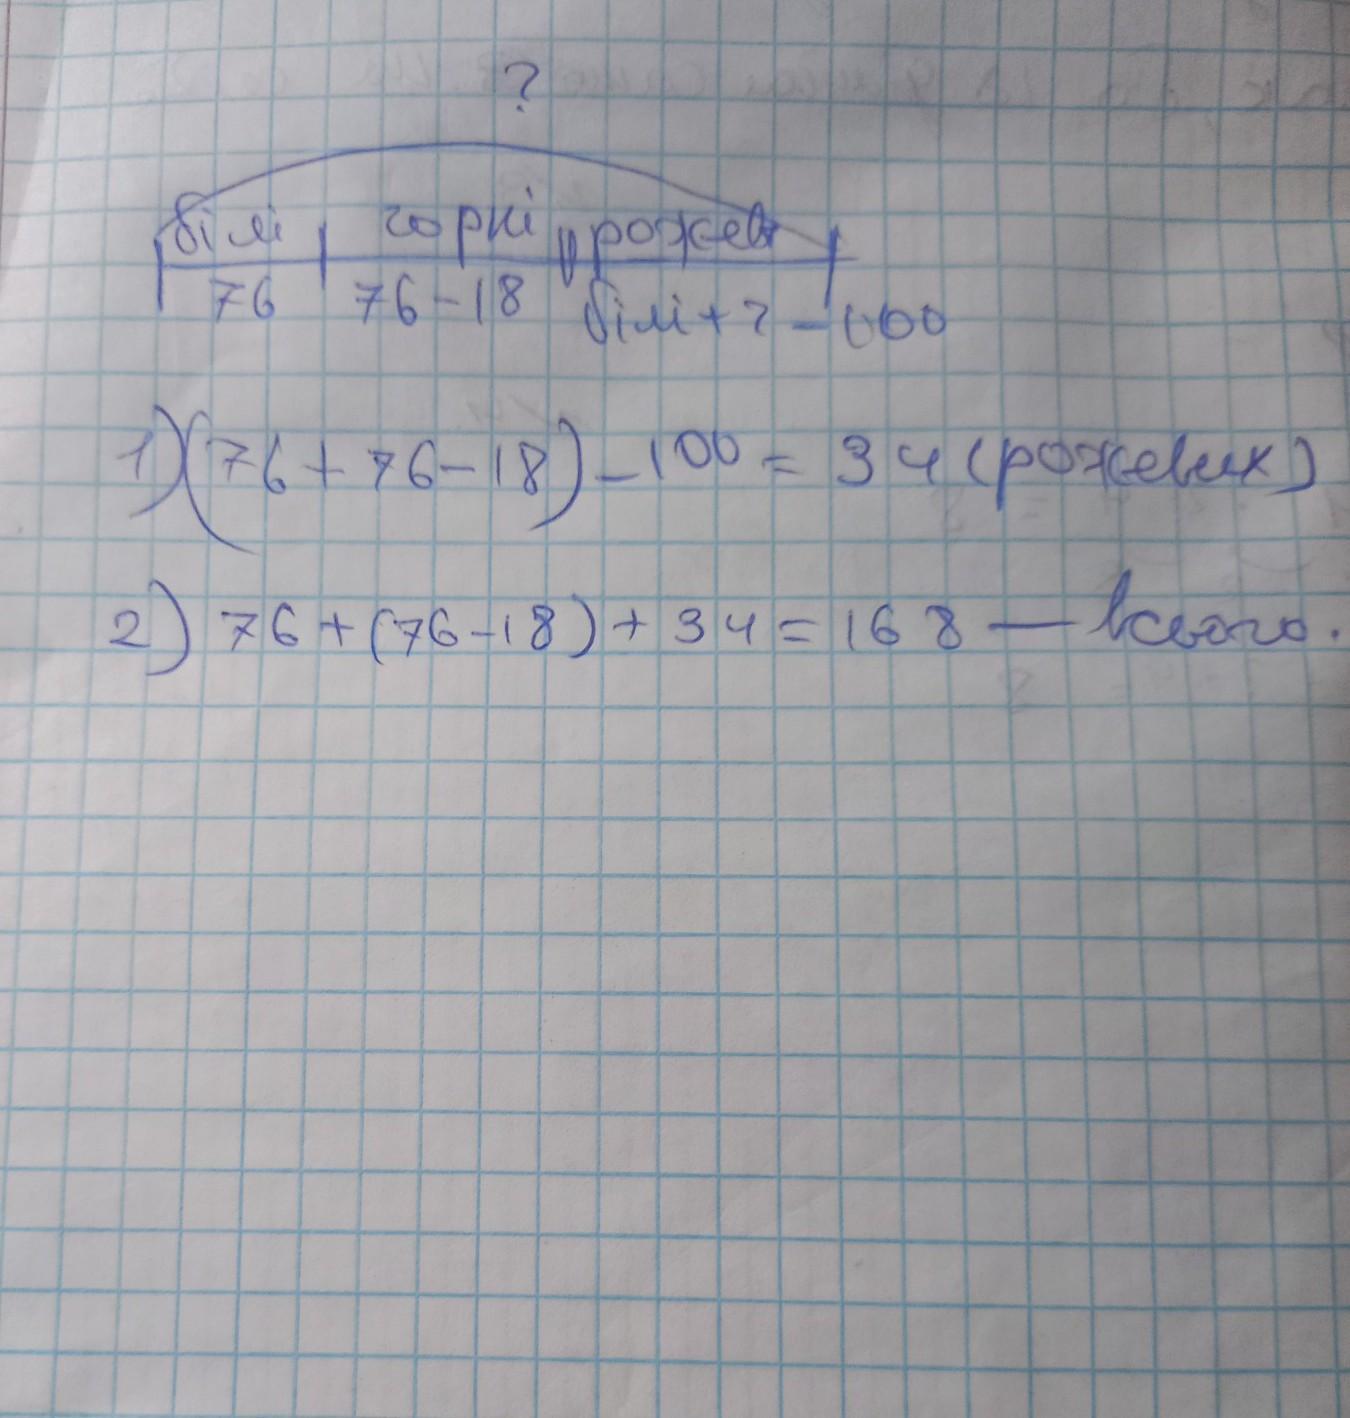 ?
білі чорні рожеві
76 76-18 білі+?-100
1) (76+76-18)-100=34 (рожевих)
2) 76+(76-18)+34=168 — всього.